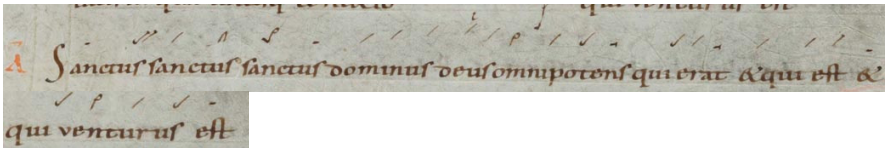 A Sanctus sanctus sanctus dominus deus omnipotens qui erat & qui est &
qui venturus est